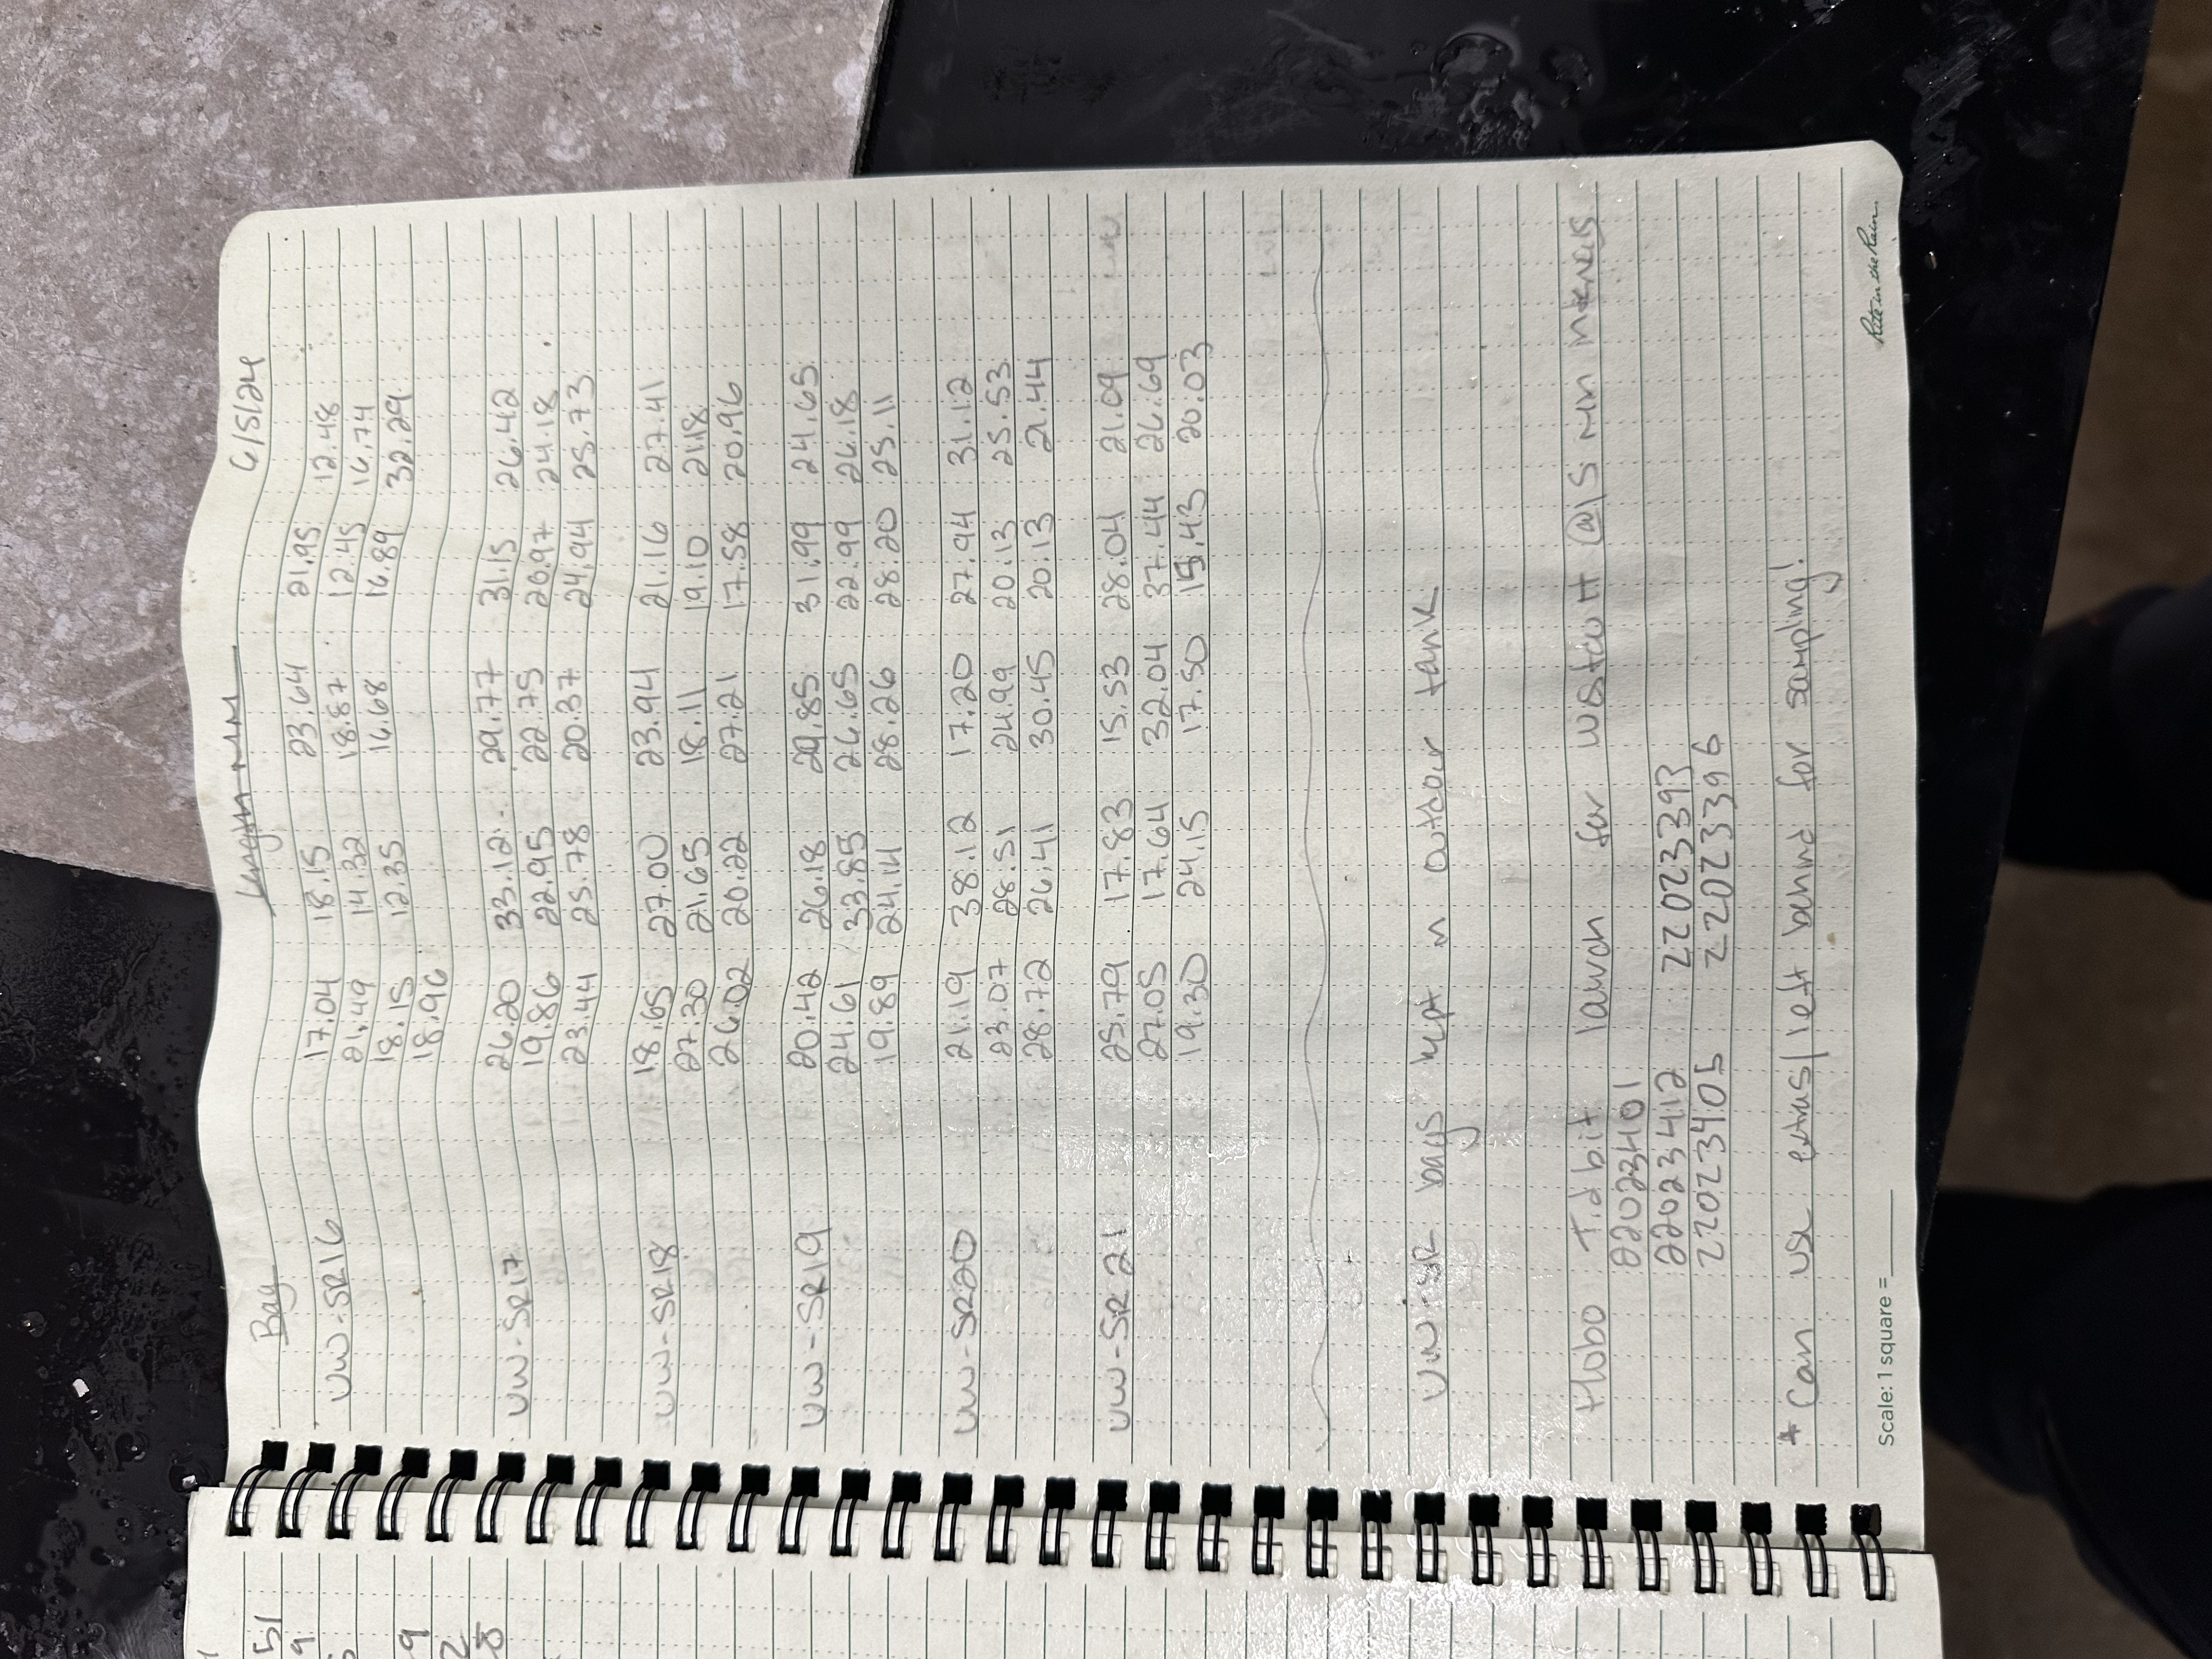 Bag Length MM 6/5/24
UW-SR16 17.04 18.15 23.64 21.95 12.48
21.49 14.32 18.87 12.45 16.74
18.15 12.35 16.68 16.89 32.29
18.96
UW-SR17 26.20 33.12 29.77 31.15 26.42
19.86 22.95 22.75 20.97 24.18
23.44 25.78 20.37 24.94 25.73
UW-SR18 18.65 27.00 23.94 21.16 27.41
27.30 21.65 18.11 19.10 21.18
26.02 20.22 27.21 17.58 20.96
UW-SR19 20.42 26.18 29.85 31.99 24.65
24.61 33.85 26.65 22.99 26.18
19.89 24.14 28.26 28.20 25.11
UW-SR20 21.19 38.12 17.20 27.94 31.12
23.07 28.51 24.99 20.13 25.53
28.72 26.41 30.45 20.13 21.44
UW-SR21 25.79 17.83 15.53 28.04 21.09
27.05 17.64 32.04 37.44 26.69
19.30 24.15 17.50 .43 20.03
UW-SR bags kept in outdoor tank
Hobo Tidbit launch for Westcott @15 min intervals
22023401
22023412 22023393
22023405 22023396
* Can use extras/left behind for sampling!
Scale: 1 square =
Rite in the Rain